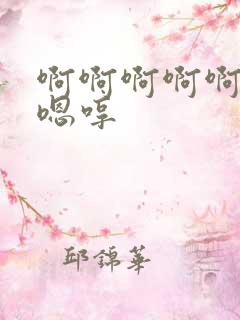 啊啊啊啊啊
嗯哼
邱锦华